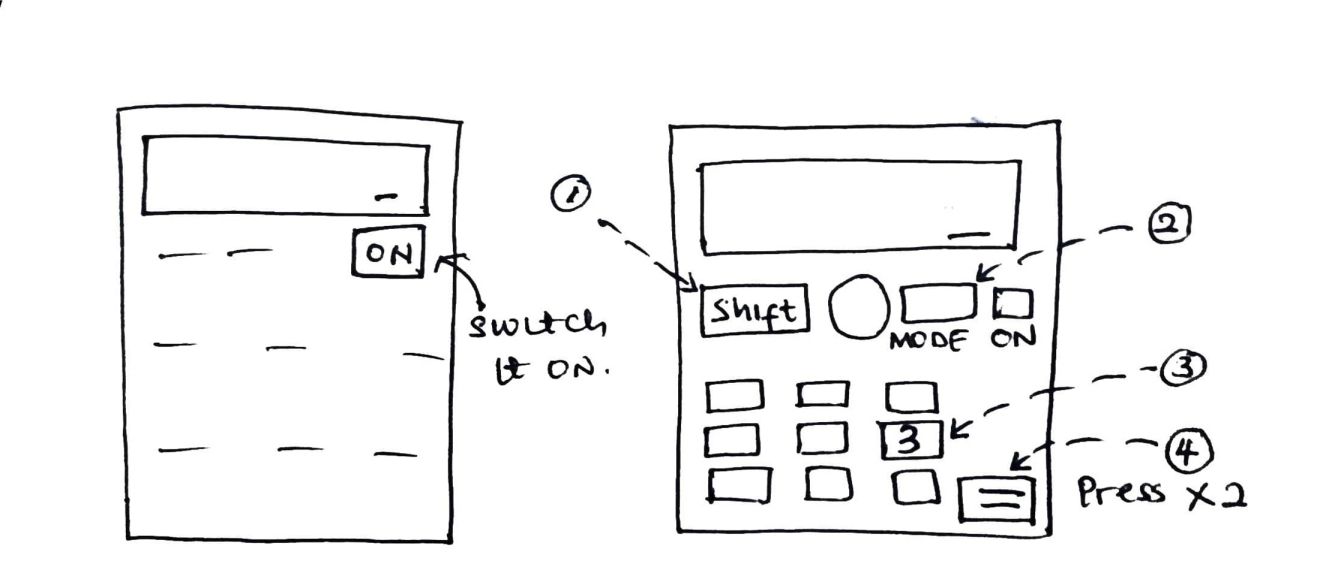 ON
switch
it ON.
①
②
Shift
MODE ON
③
3
④
=
Press x2